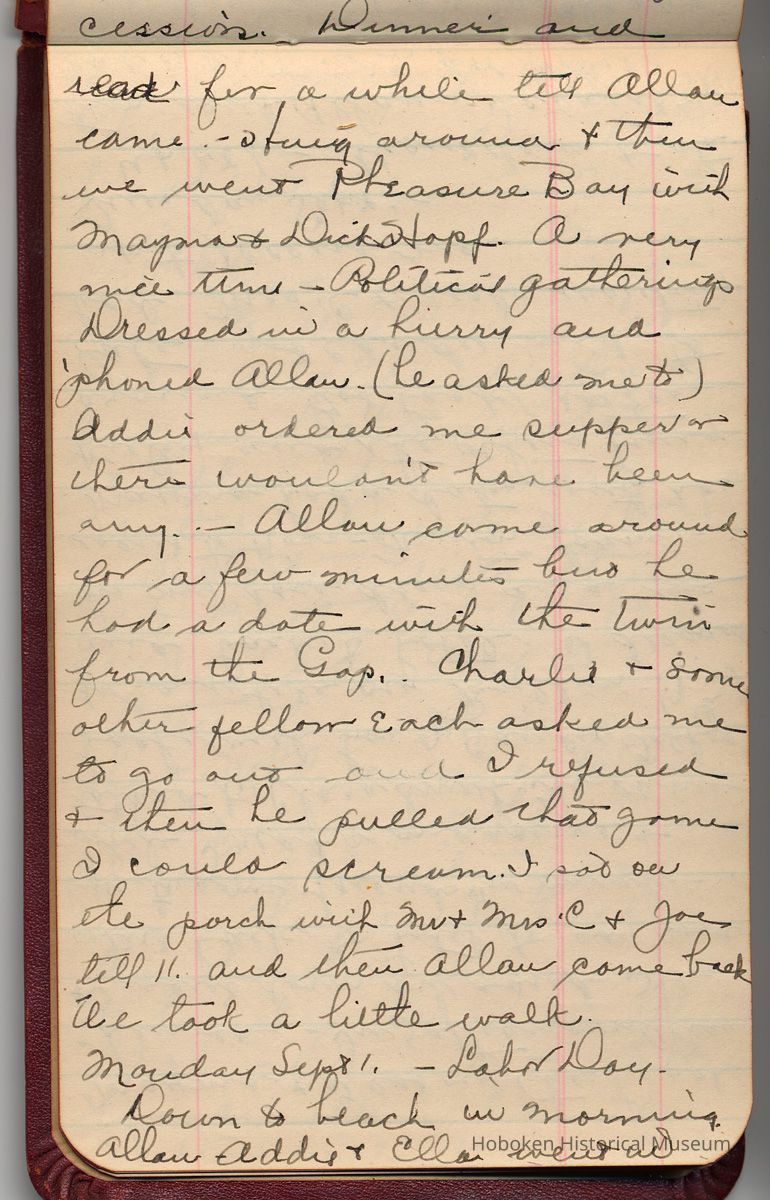 cession. Dinner and
read for a while till Allan
came. - Hung around & then
we went Pleasure Bay with
Mayna & Dick Hopf. A very
nice time - Political gatherings
Dressed in a hurry and
'phoned Allan. (he asked me to)
Addie ordered me supper or
there wouldn't have been
any. - Allan came around
for a few minutes but he
had a date with the twin
from the Gap. . Charlie & some
other fellow each asked me
to go out and I refused
& then he pulled that game
I could scream. I sat on
the porch with Mr & Mrs. C & Joe
till 11. and then Allan came back
We took a little walk.
Monday Sept 1. - Labor Day.
Down to beach in morning.
Allan Addie & Ella went at
Hoboken Historical Museum